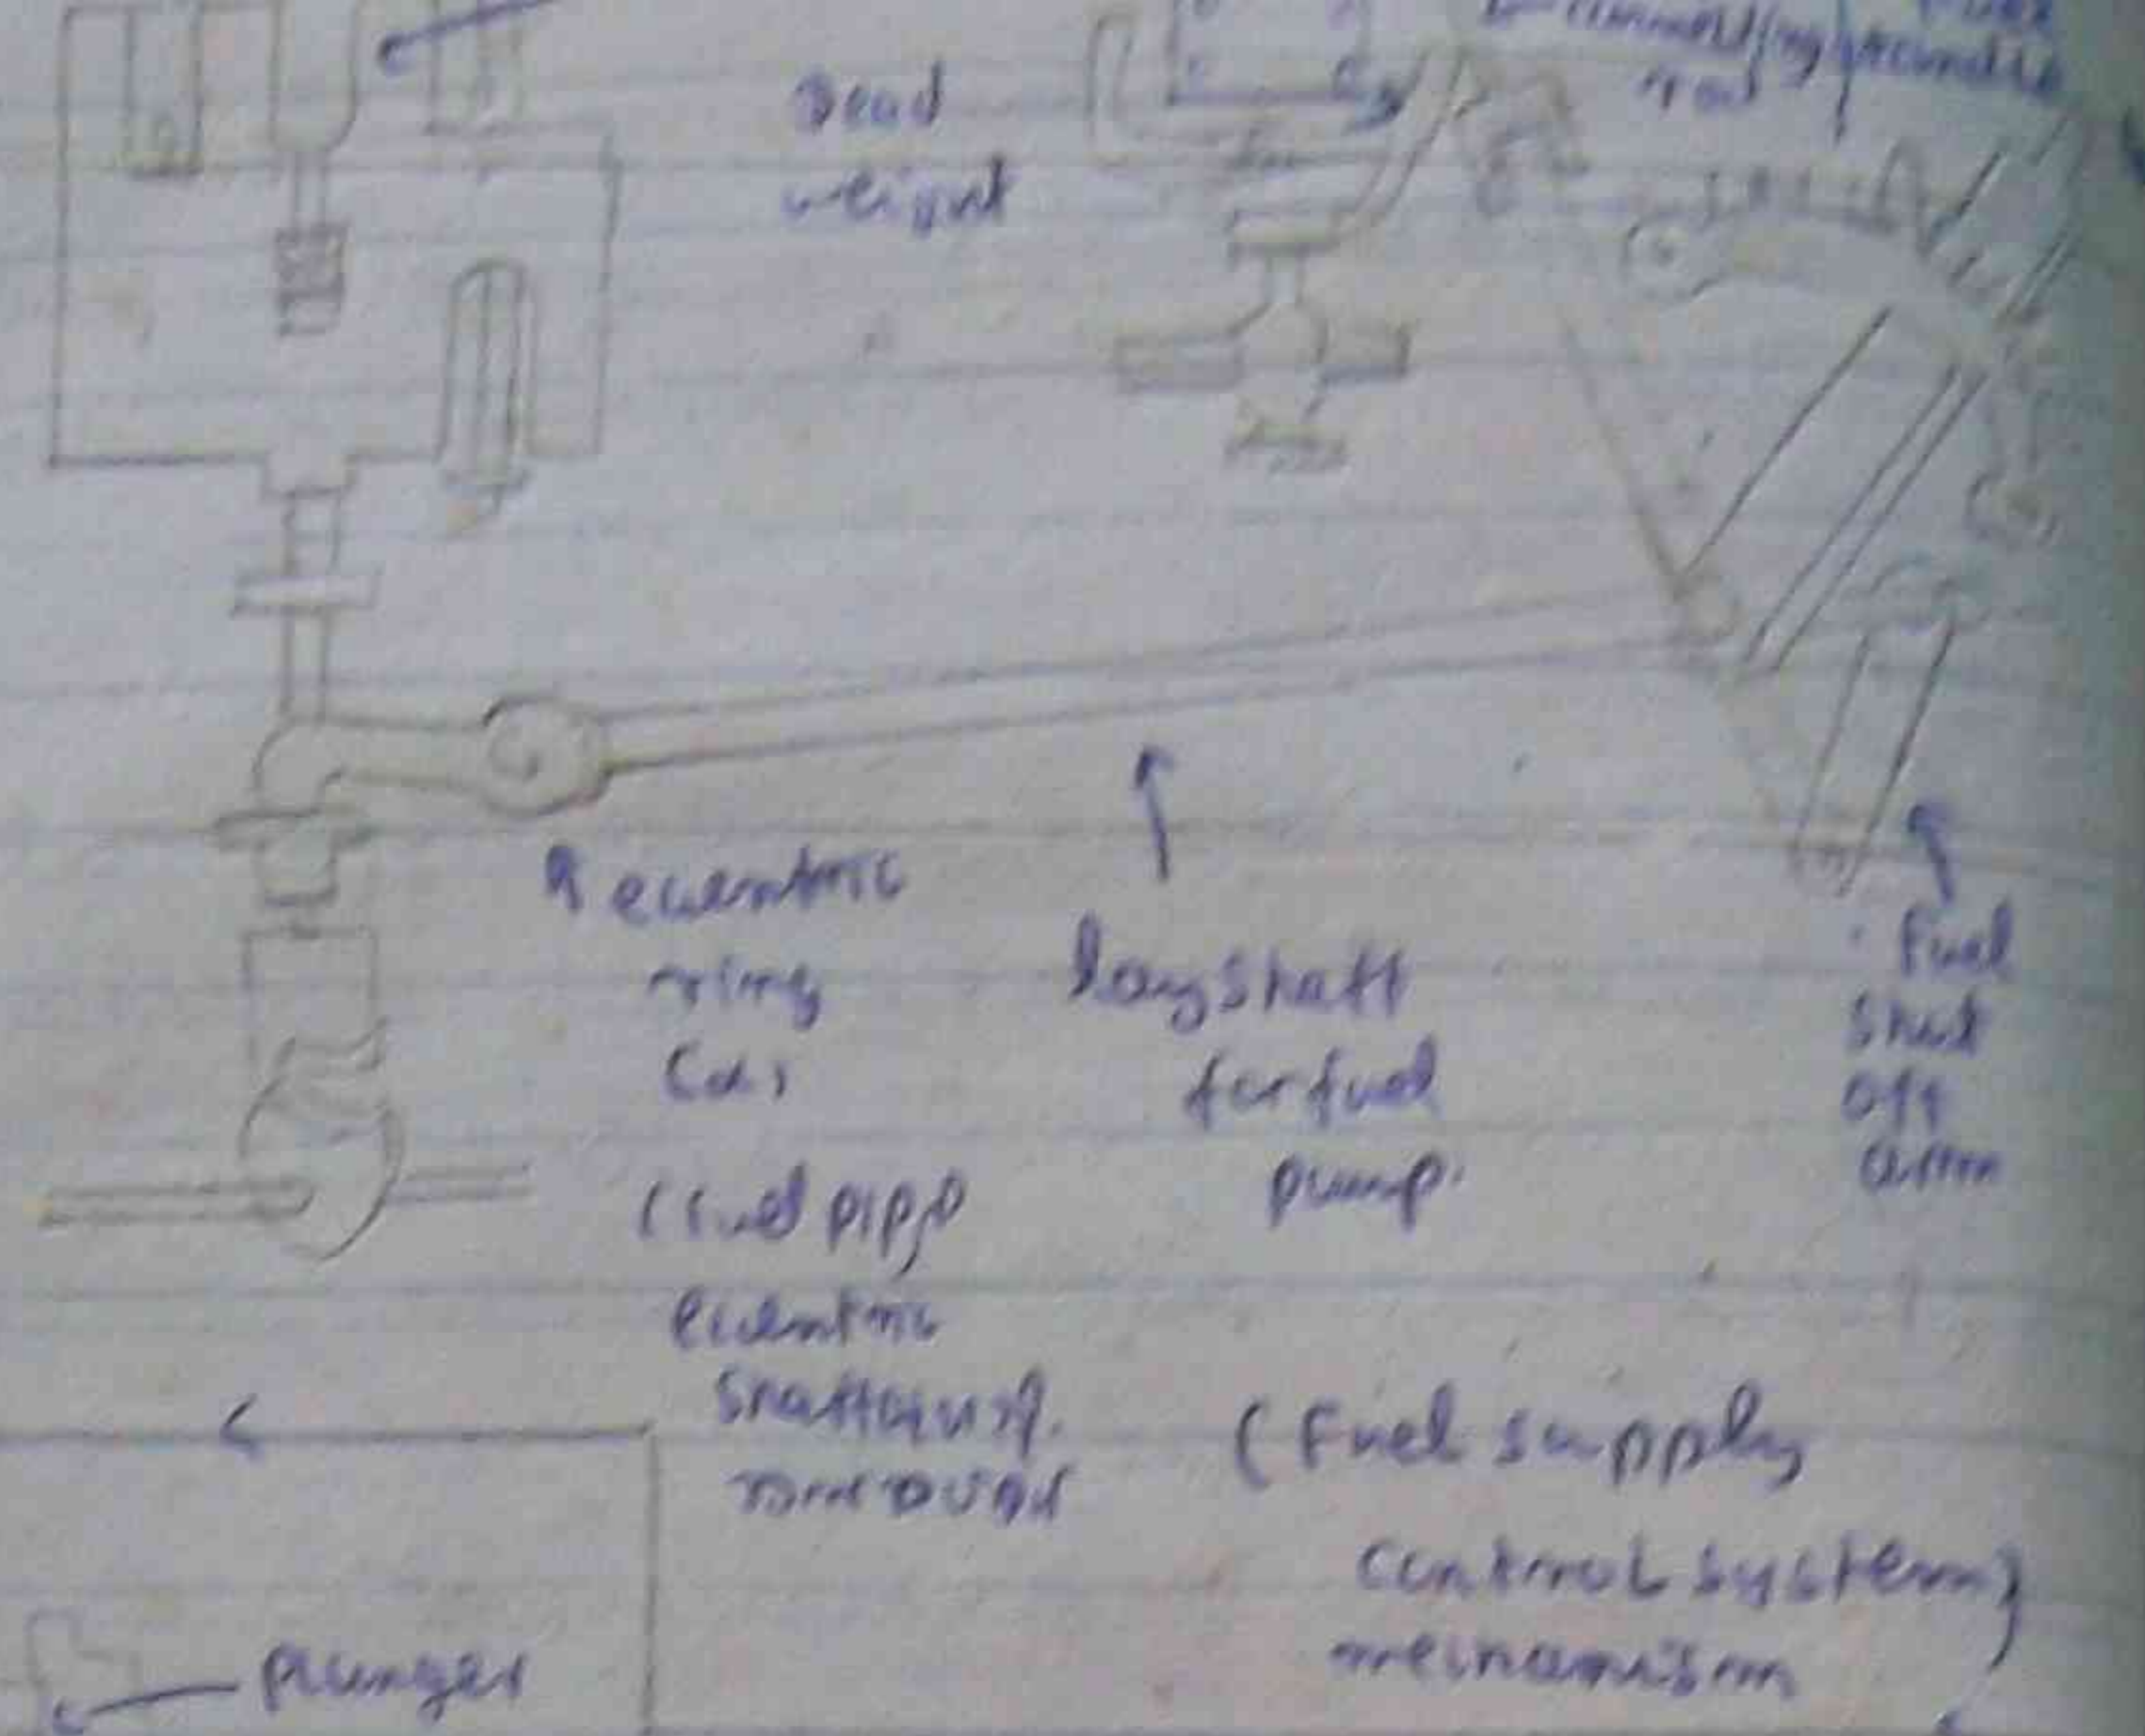 connecting
rod
Dead
weight
ecentric
ring
layshaft
for fuel
pump.
Fuel
shut
off
arm
(fuel pipe
ecentric
(Fuel supply
control system)
mechanism
plunger